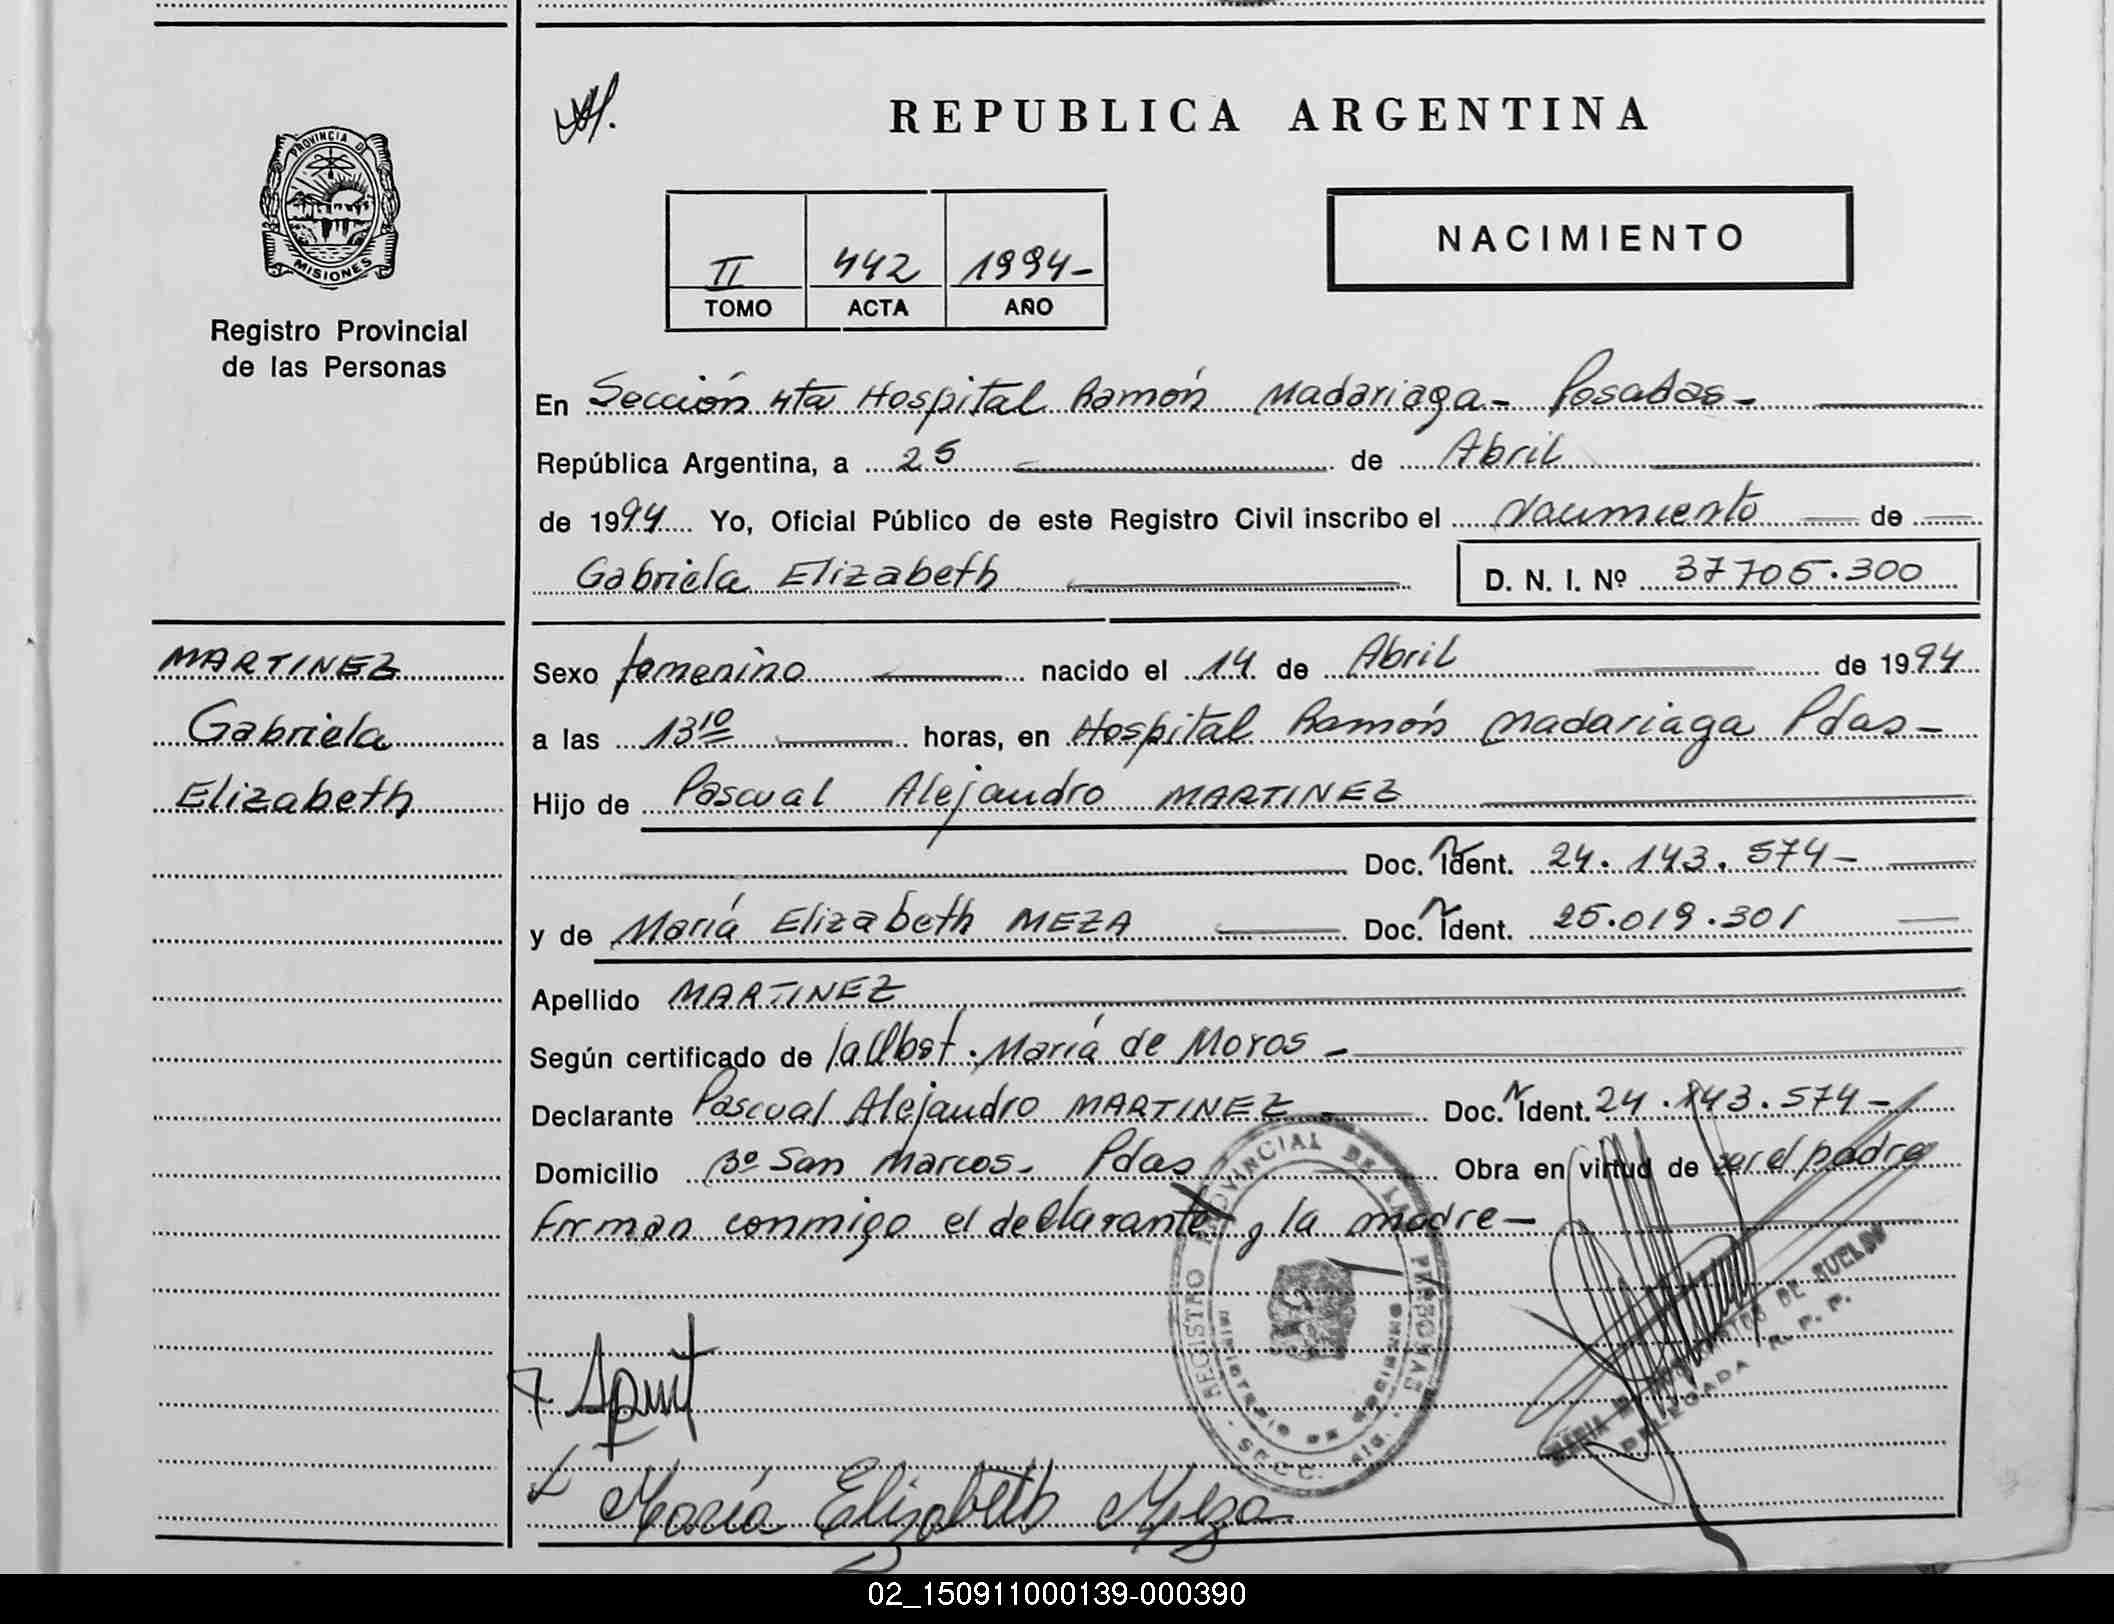 REPUBLICA ARGENTINA
PROVINCIA D
MISIONES
Registro Provincial
de las Personas
II 442 1994-
TOMO ACTA AÑO
NACIMIENTO
En Sección 4ta Hospital Ramón Madariaga- Posadas-
República Argentina, a 25 de Abril
de 1994 Yo, Oficial Público de este Registro Civil inscribo el Nacimiento de
Gabriela Elizabeth D. N. I. Nº 37705.300
MARTINEZ
Gabriela
Elizabeth
Sexo femenino nacido el 14 de Abril de 1994
a las 13¹⁰ horas, en Hospital Ramón Madariaga Pdas-
Hijo de Pascual Alejandro MARTINEZ
Doc. Ident. 24.143.574-
y de María Elizabeth MEZA Doc. Ident. 25.019.301
Apellido MARTINEZ
Según certificado de la Obst. María de Moros-
Declarante Pascual Alejandro MARTINEZ Doc. Ident. 24.143.574-
Domicilio Bº San Marcos- Pdas Obra en virtud de ser el padre
Firman conmigo el declarante y la madre-
REGISTRO PROVINCIAL DE LAS PERSONAS
MINISTERIO DE GOBIERNO
SECC. 4ta.
DELEGADA R. P. P.
María Elizabeth Meza
02_150911000139-000390